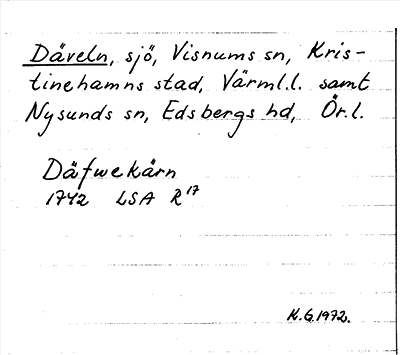 Däveln, sjö, Visnums sn, Kris-
tinehamns stad, Värml.l. samt
Nysunds sn, Edsbergs hd, Ör.l.
Däfwekärn
1742 LSA R 17
K.G.1972.